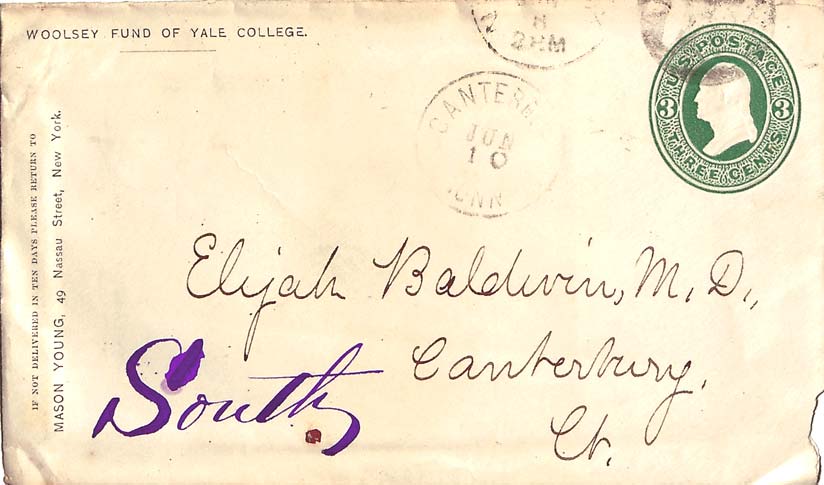 WOOLSEY FUND OF YALE COLLEGE.
IF NOT DELIVERED IN TEN DAYS PLEASE RETURN TO
MASON YOUNG, 49 Nassau Street, New York.
2 PM
CANTER
JUN
10
CONN
U.S. POSTAGE
3 3
THREE CENTS
Elijah Baldwin, M. D.,
Canterbury.
Ct.
South